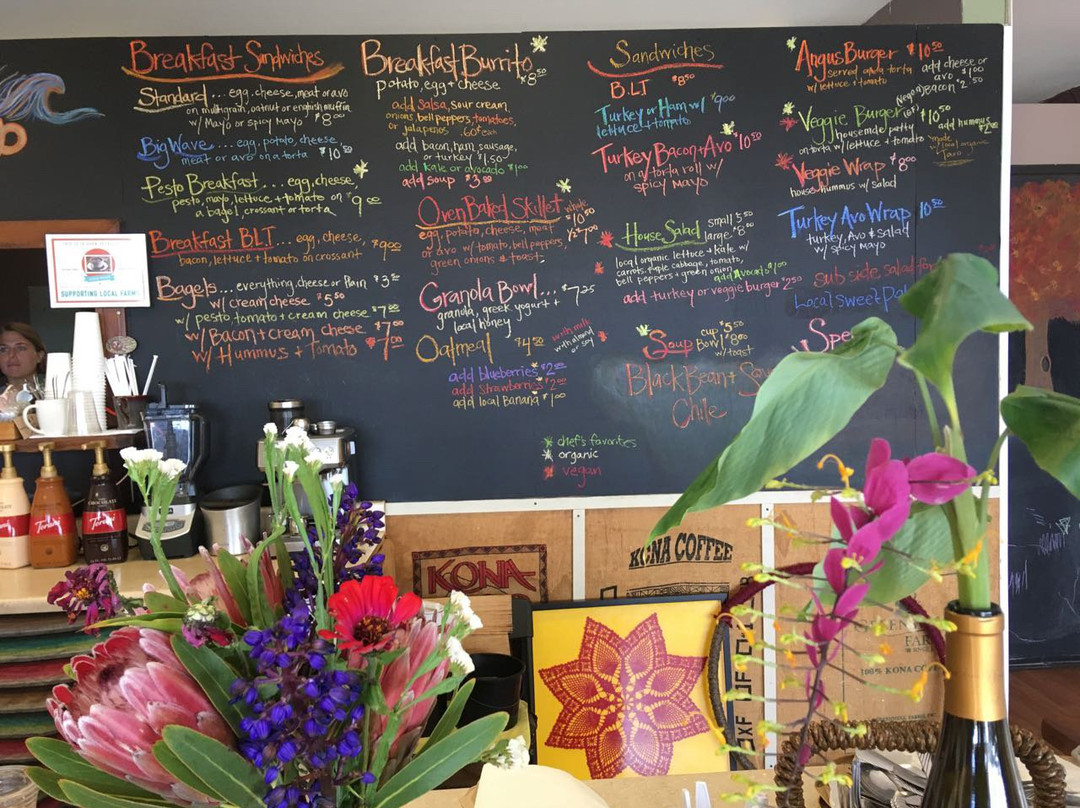 Breakfast Sandwiches
Standard... egg, cheese, meat or avo
on multigrain, oatnut or english muffin
w/ Mayo or spicy Mayo $8.00
Big Wave... egg, potato, cheese
meat or avo on a torta $10.50
Pesto Breakfast... egg, cheese,
pesto, mayo, lettuce + tomato on $9.00
a bagel, croissant or torta
Breakfast BLT... egg, cheese,
bacon, lettuce + tomato on croissant $9.00
Bagels... everything, cheese or Plain $3.50
w/ cream cheese $5.50
w/ pesto tomato + cream cheese $7.00
w/ Bacon + cream cheese $7.00
w/ Hummus + Tomato
Breakfast Burrito
potato, egg + cheese $8.50
add salsa, sour cream,
onions, bell peppers, tomatoes,
or jalapenos .60 each
add bacon, ham, sausage,
or turkey $1.50
add kale or avocado $1.00
add soup $3.00
Oven Baked Skillet
whole $10.50
egg, potato, cheese, meat
1/2 $7.00
or avo w/ tomato, bell peppers,
green onions & toast
Granola Bowl... $7.25
granola, greek yogurt +
local honey
Oatmeal $4.50
with milk
with almond
or soy
add blueberries $2.00
add strawberries $2.00
add local Banana $1.00
chef's favorites
organic
vegan
Sandwiches
B.L.T $8.50
Turkey or Ham w/ $9.00
lettuce + tomato
Turkey Bacon + Avo $10.50
on a torta roll w/
spicy mayo
House Salad small 5.50
large $8.00
local organic lettuce + kale w/
carrots, purple cabbage, tomato,
bell peppers + green onion
add Avocado $1.00
add turkey or veggie burger $2.50
Soup cup $5.50
Bowl $8.00
w/ toast
Black Bean +
Chile
Angus Burger $10.50
served on a torta
w/ lettuce + tomato
add cheese or
avo $1.00
bacon $2.50
Veggie Burger $10.50
housemade patty
on torta w/ lettuce + tomato
add hummus
$2.00
Veggie Wrap $8.00
house hummus w/ salad
Turkey Avo Wrap 10.50
turkey, Avo & salad
w/ spicy Mayo
sub side salad for
Local Sweet
Spe
SUPPORTING LOCAL FARMS
Torani
Torani
KONA
KONA COFFEE
100% KONA